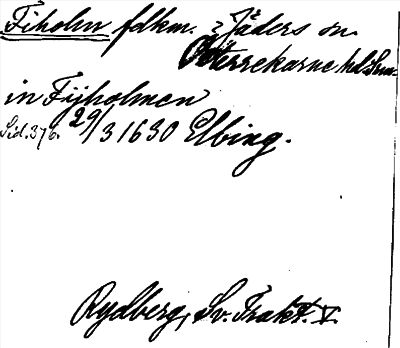 Fiholm fdkm. i Jäders sn.
Österrekarne hd. Srm.
in Fijholmen
Sid. 376. 29/3 1630 Elbing.
Rydberg, Sv. Trakt. V.